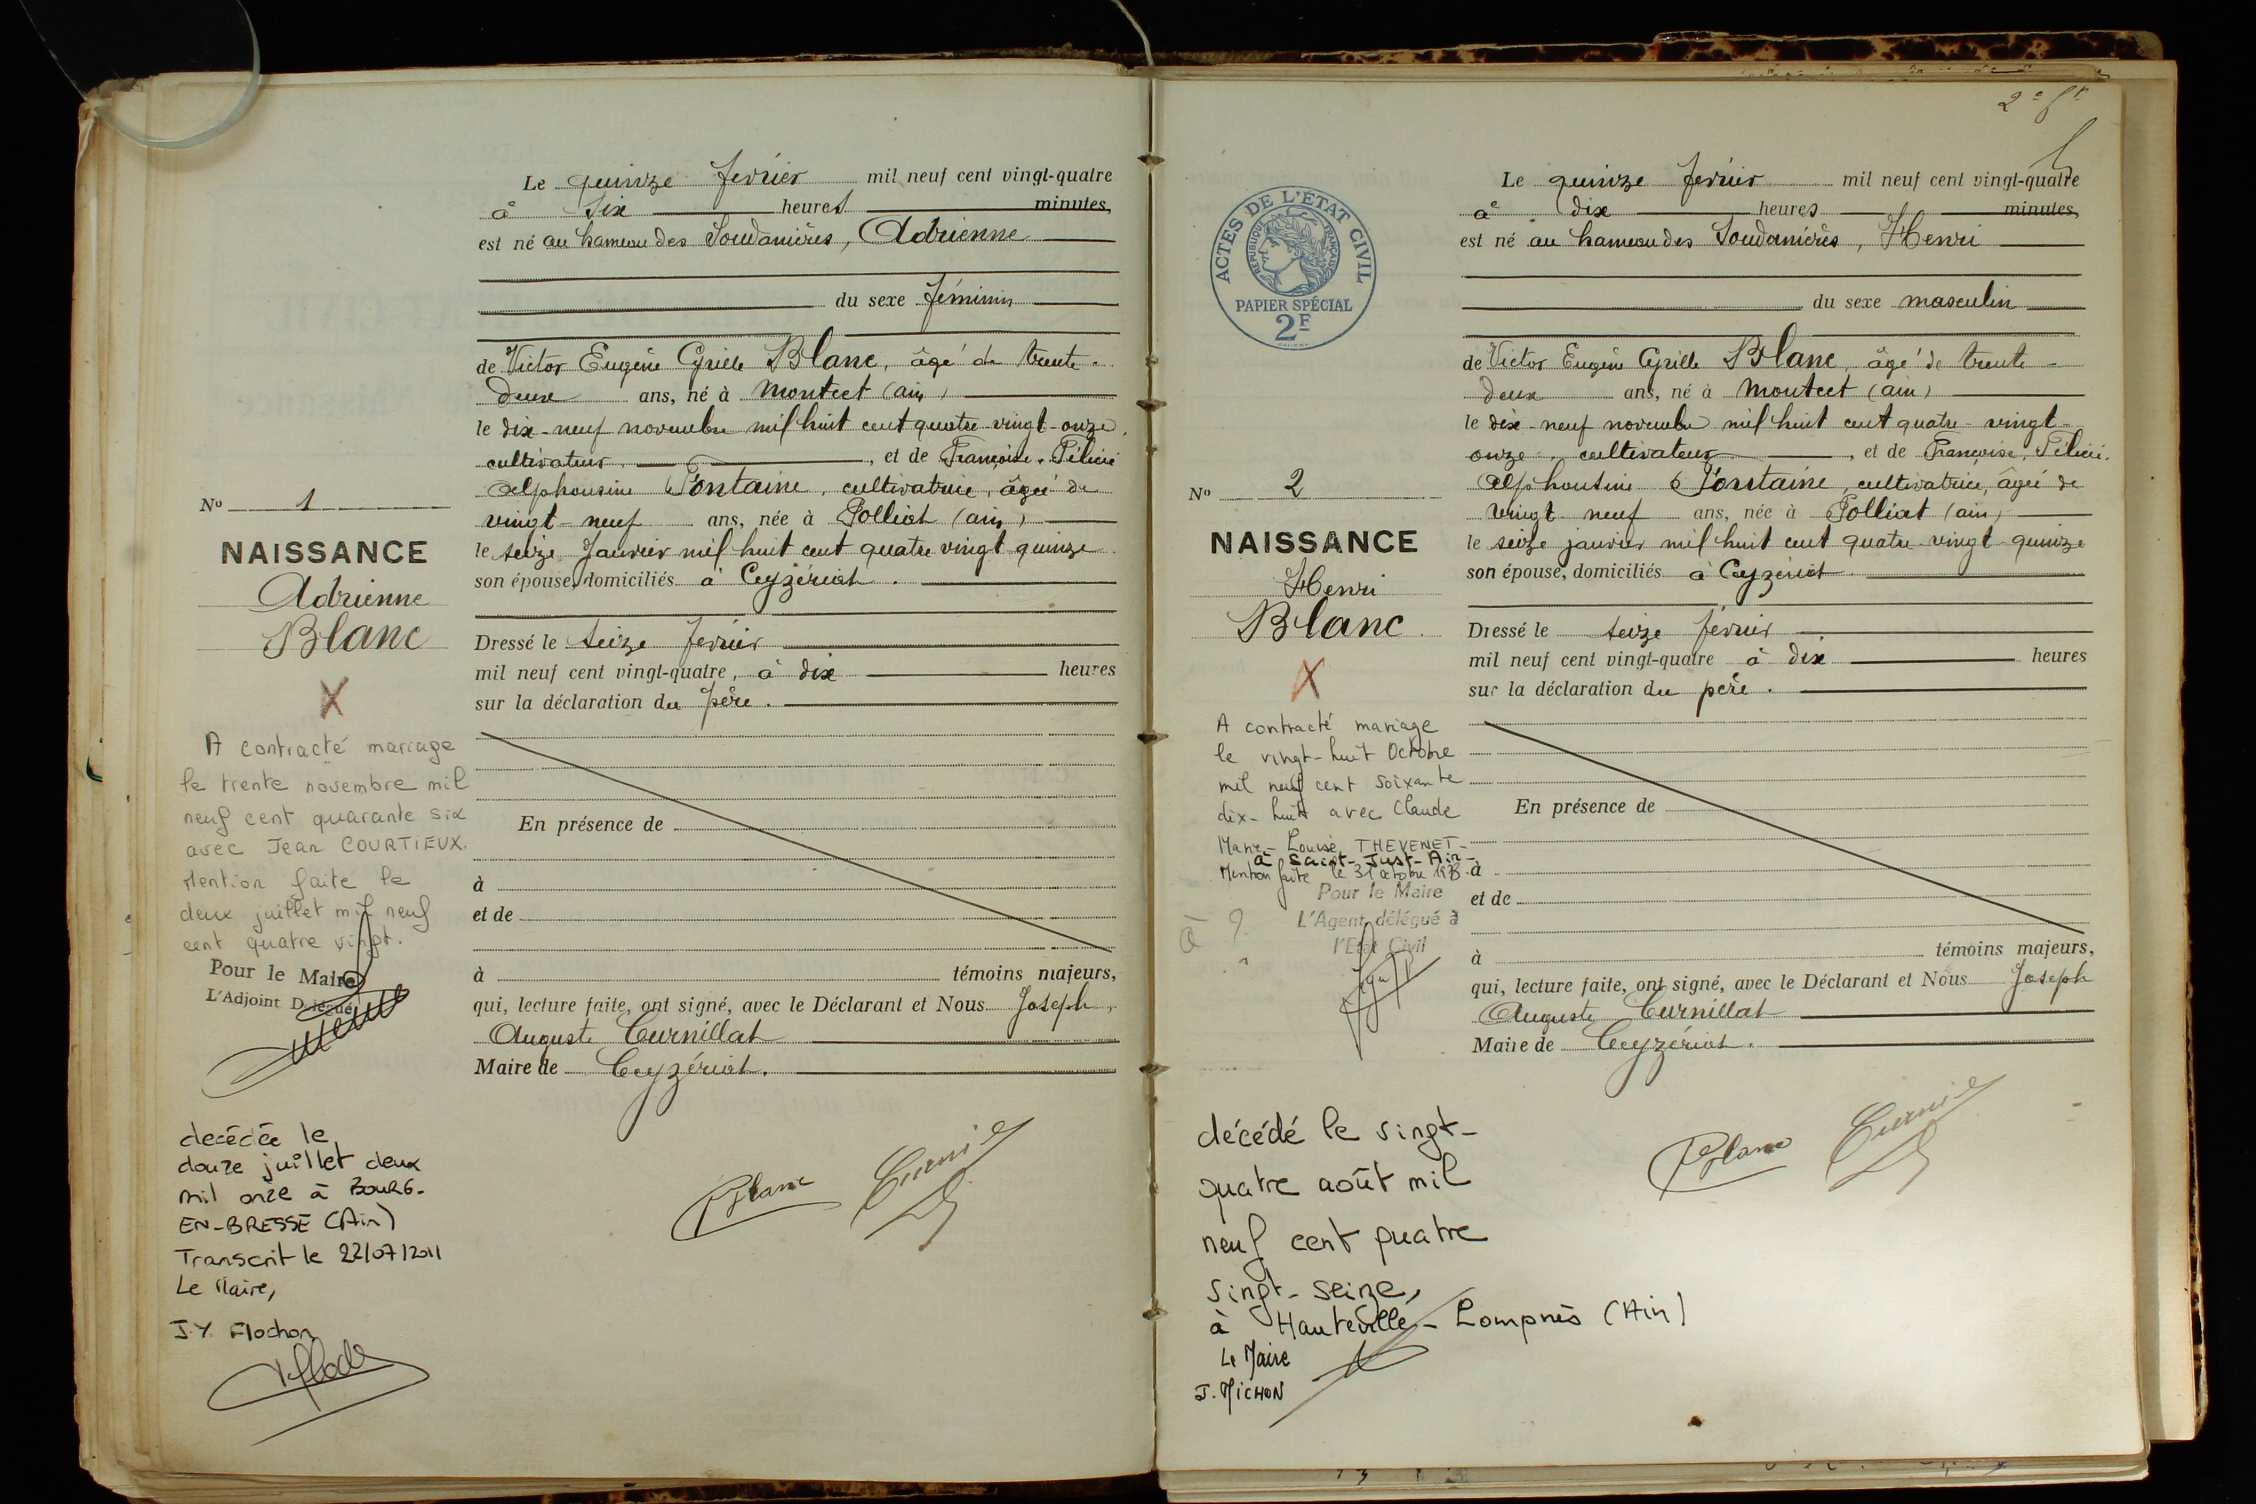 Le quinze février mil neuf cent vingt-quatre
à six heures minutes,
est né au hameau des Soudanières, Adrienne
du sexe féminin
de Victor Eugène Cyrille Blanc, âgé de trente-
deux ans, né à Montcet (ain)
le dix-neuf novembre mil huit cent quatre-vingt-onze,
cultivateur, et de Françoise, Félicie
Alphonsine Fontaine, cultivatrice, âgée de
vingt-neuf ans, née à Polliat (ain)
le seize Janvier mil huit cent quatre vingt quinze
son épouse, domiciliés à Ceyzériat.
Dressé le seize février
mil neuf cent vingt-quatre, à dix heures
sur la déclaration du père.
En présence de
à
et de
à témoins majeurs,
qui, lecture faite, ont signé, avec le Déclarant et Nous Joseph,
Auguste Curnillat
Maire de Ceyzériat.
Blanc
No 1
NAISSANCE
Adrienne
Blanc
X
A contracté mariage
le trente novembre mil
neuf cent quarante six
avec Jean COURTIEUX.
Mention faite le
deux juillet mil neuf
cent quatre vingt.
Pour le Maire
L'Adjoint Délégué
decédée le
douze juillet deux
mil onze à BOURG-
EN-BRESSE (Ain)
Transcrit le 22/07/2011
Le Maire,
J.Y. Flochon
2e ft
ACTES DE L'ÉTAT CIVIL
RÉPUBLIQUE FRANÇAISE
PAPIER SPÉCIAL
2F
Le quinze février mil neuf cent vingt-quatre
à dix heures minutes,
est né au hameau des Soudanières, Henri
du sexe masculin
de Victor Eugène Cyrille Blanc, âgé de trente-
deux ans, né à Montcet (ain)
le dix-neuf novembre mil huit cent quatre-vingt-
onze, cultivateur, et de Françoise, Félicie,
Alphonsine Fontaine, cultivatrice, âgée de
vingt neuf ans, née à Polliat (ain)
le seize janvier mil huit cent quatre-vingt-quinze
son épouse, domiciliés à Ceyzériat
Dressé le seize février
mil neuf cent vingt-quatre à dix heures
sur la déclaration du père.
En présence de
à
et de
à témoins majeurs,
qui, lecture faite, ont signé, avec le Déclarant et Nous Joseph
Auguste Curnillat
Maire de Ceyzériat.
Blanc
No 2
NAISSANCE
Henri
Blanc
X
A contracté mariage
le vingt-huit Octobre
mil neuf cent soixante
dix-huit avec Claude
Marie-Louise THEVENET-
à Saint-Just-Ain-
Mention faite le 31 octobre 1978.
Pour le Maire
L'Agent délégué à
l'Etat Civil
décédé le vingt-
quatre août mil
neuf cent quatre
vingt-seize,
à Hauteville-Lompnès (Ain)
Le Maire
J. MICHON